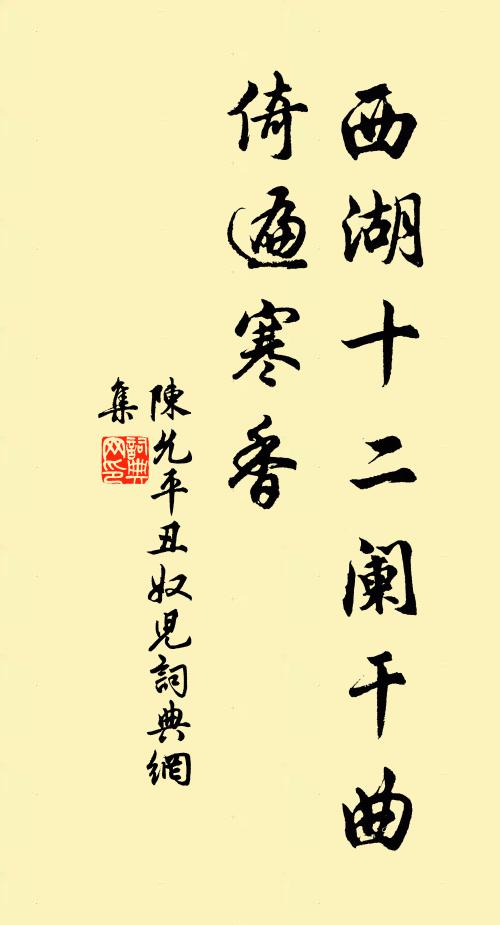 西湖十二阑干曲
倚遍寒香
陳允平丑奴児詞典網
集
詞典
网印